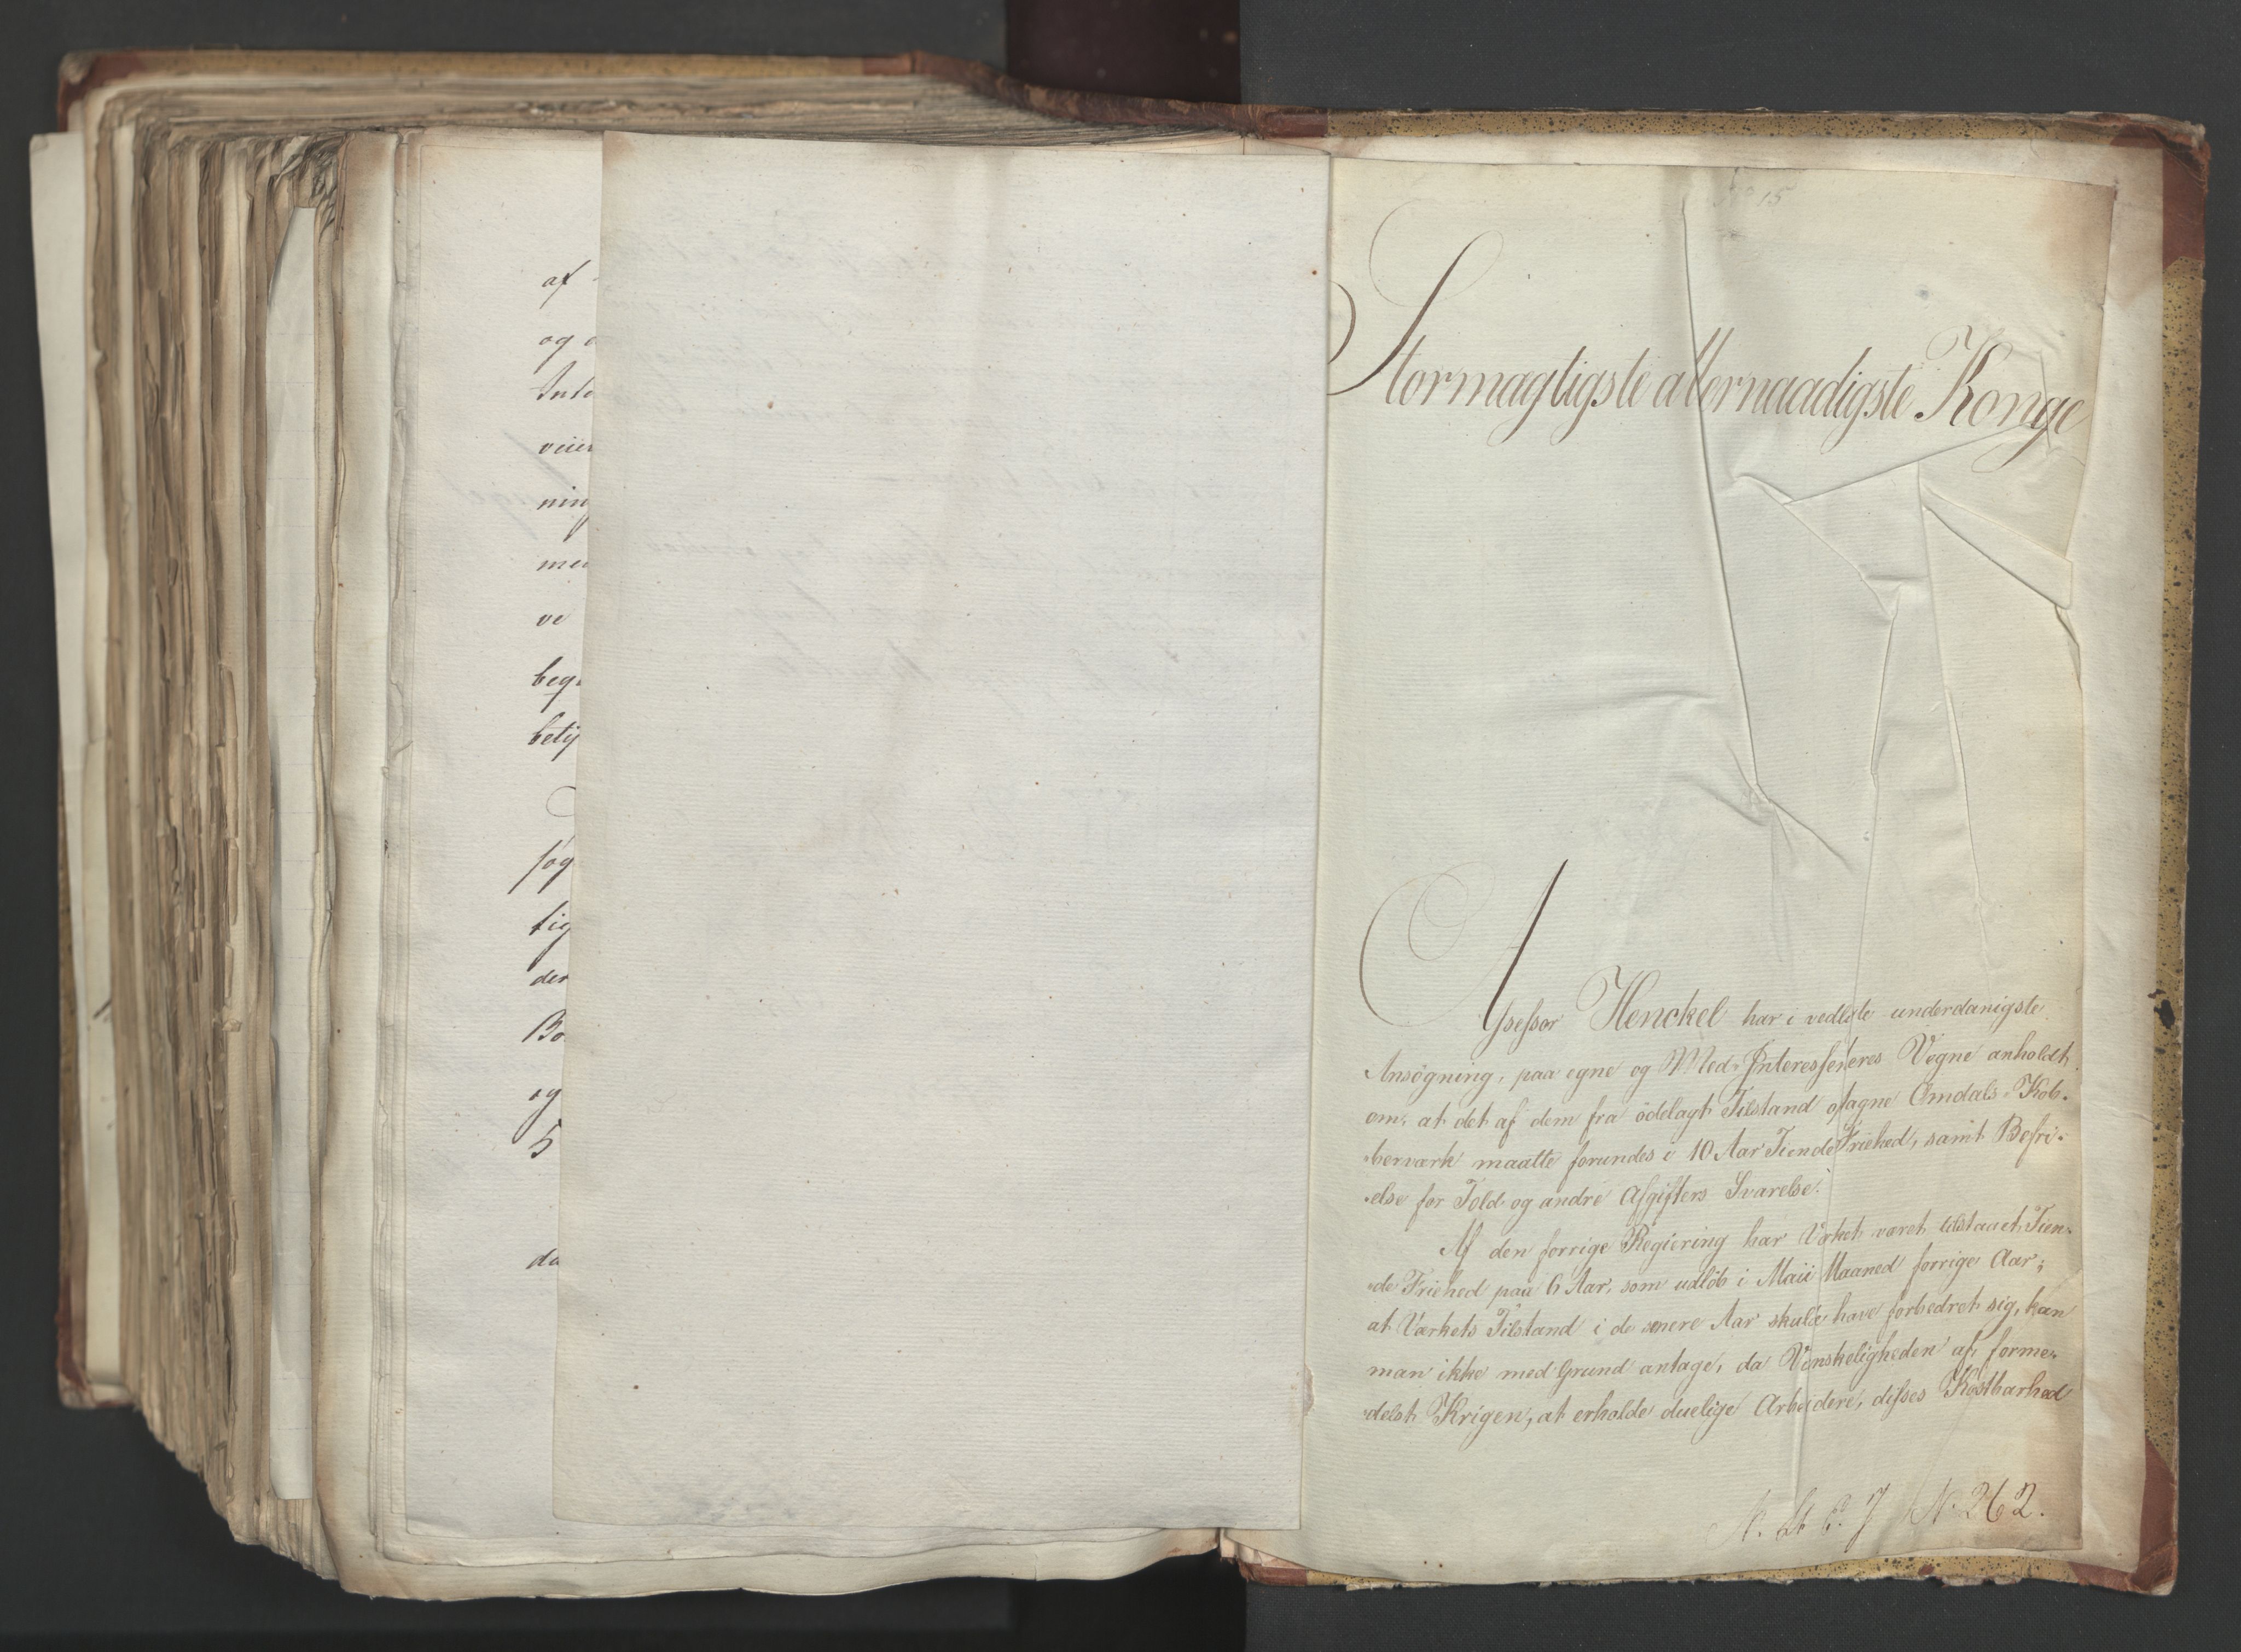 af
og
Inte
veien
ning
men
ve
begr
bety
søg
tig
der
Bo
og
5
da
No 15
Stormægtigste allernaadigste Konge
Assessor Henckel har i vedlagte underdanigste
Ansøgning, paa egne og Med-Interessenteres Vegne anholdt
om, at det af dem fra ödelagt Tilstand optagne Omdals-Kob-
berværk maatte forundes i 10 Aar Tiende Friehed, samt Befri-
else for Told og andre Afgifters Svarelse.
Af den forrige Regiering har Værket været tilstaaet Tien-
de Friehed paa 6 Aar, som udløb i Maii Maaned forrige Aar;
at Værkets Tilstand i de senere Aar skulde have forbedret sig, kan
man ikke med Grund antage, da Vanskeligheden af, forme-
delst Krigen, at erholde duelige Arbeidere, disses Kostbarhed
N. 262.